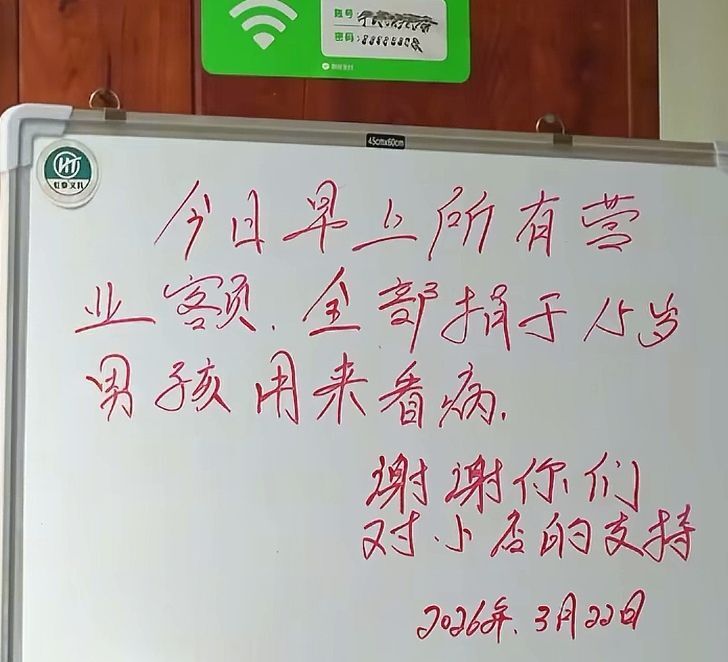 账号
密码:
微信支付
45cmx60cm
HT
今日早上所有营
业额.全部捐于15岁
男孩用来看病.
谢谢你们
对小店的支持
2026年.3月22日